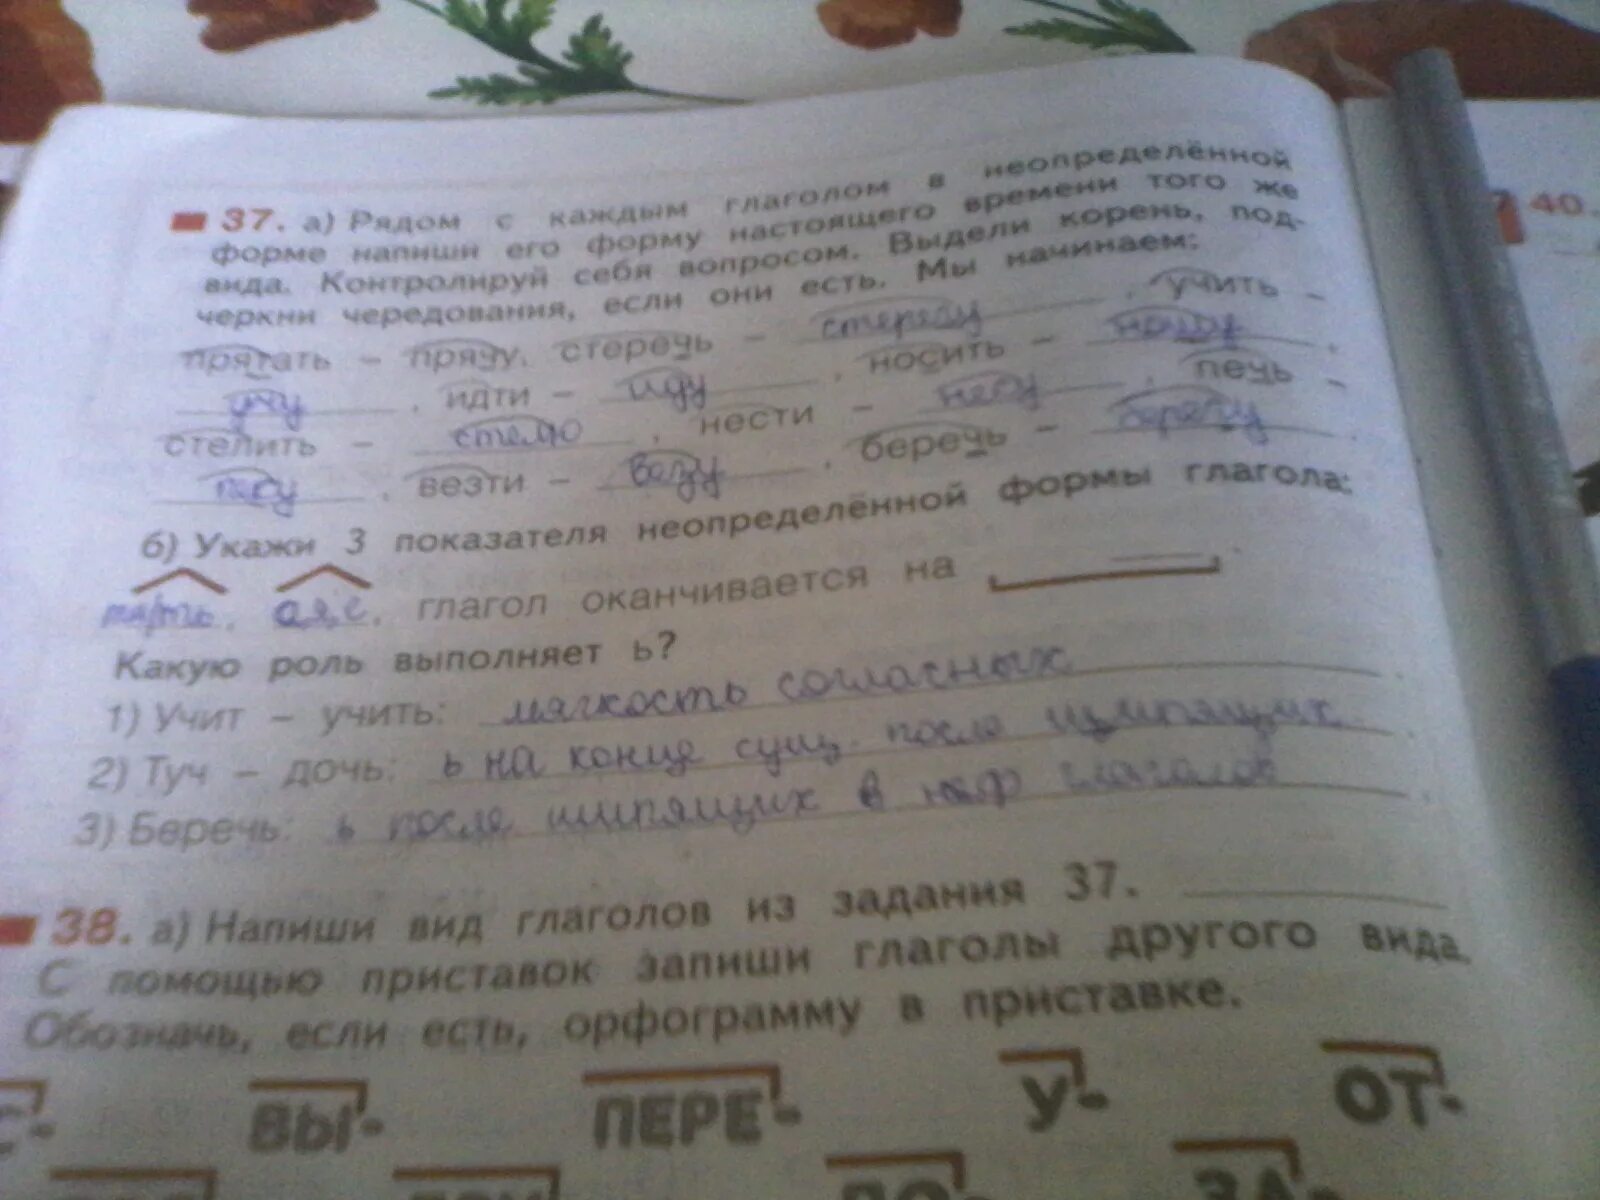 37. а) Рядом с каждым глаголом в неопределённой
форме напиши его форму настоящего времени того же
вида. Контролируй себя вопросом. Выдели корень, под-
черкни чередования, если они есть. Мы начинаем:
прятать – прячу, стеречь – стерегу, учить –
учу, идти – иду, носить – ношу,
стелить – стелю, нести – несу, печь –
пеку, везти – везу, беречь – берегу.
б) Укажи 3 показателя неопределённой формы глагола:
глагол оканчивается на
Какую роль выполняет ь?
1) Учит – учить: мягкость согласных.
2) Туч – дочь: ь на конце сущ. после шипящих.
3) Беречь: ь после шипящих в глаголов.
38. а) Напиши вид глаголов из задания 37.
С помощью приставок запиши глаголы другого вида.
Обозначь, если есть, орфограмму в приставке.
С- ВЫ- ПЕРЕ- У- ОТ-
ЗА-
40.